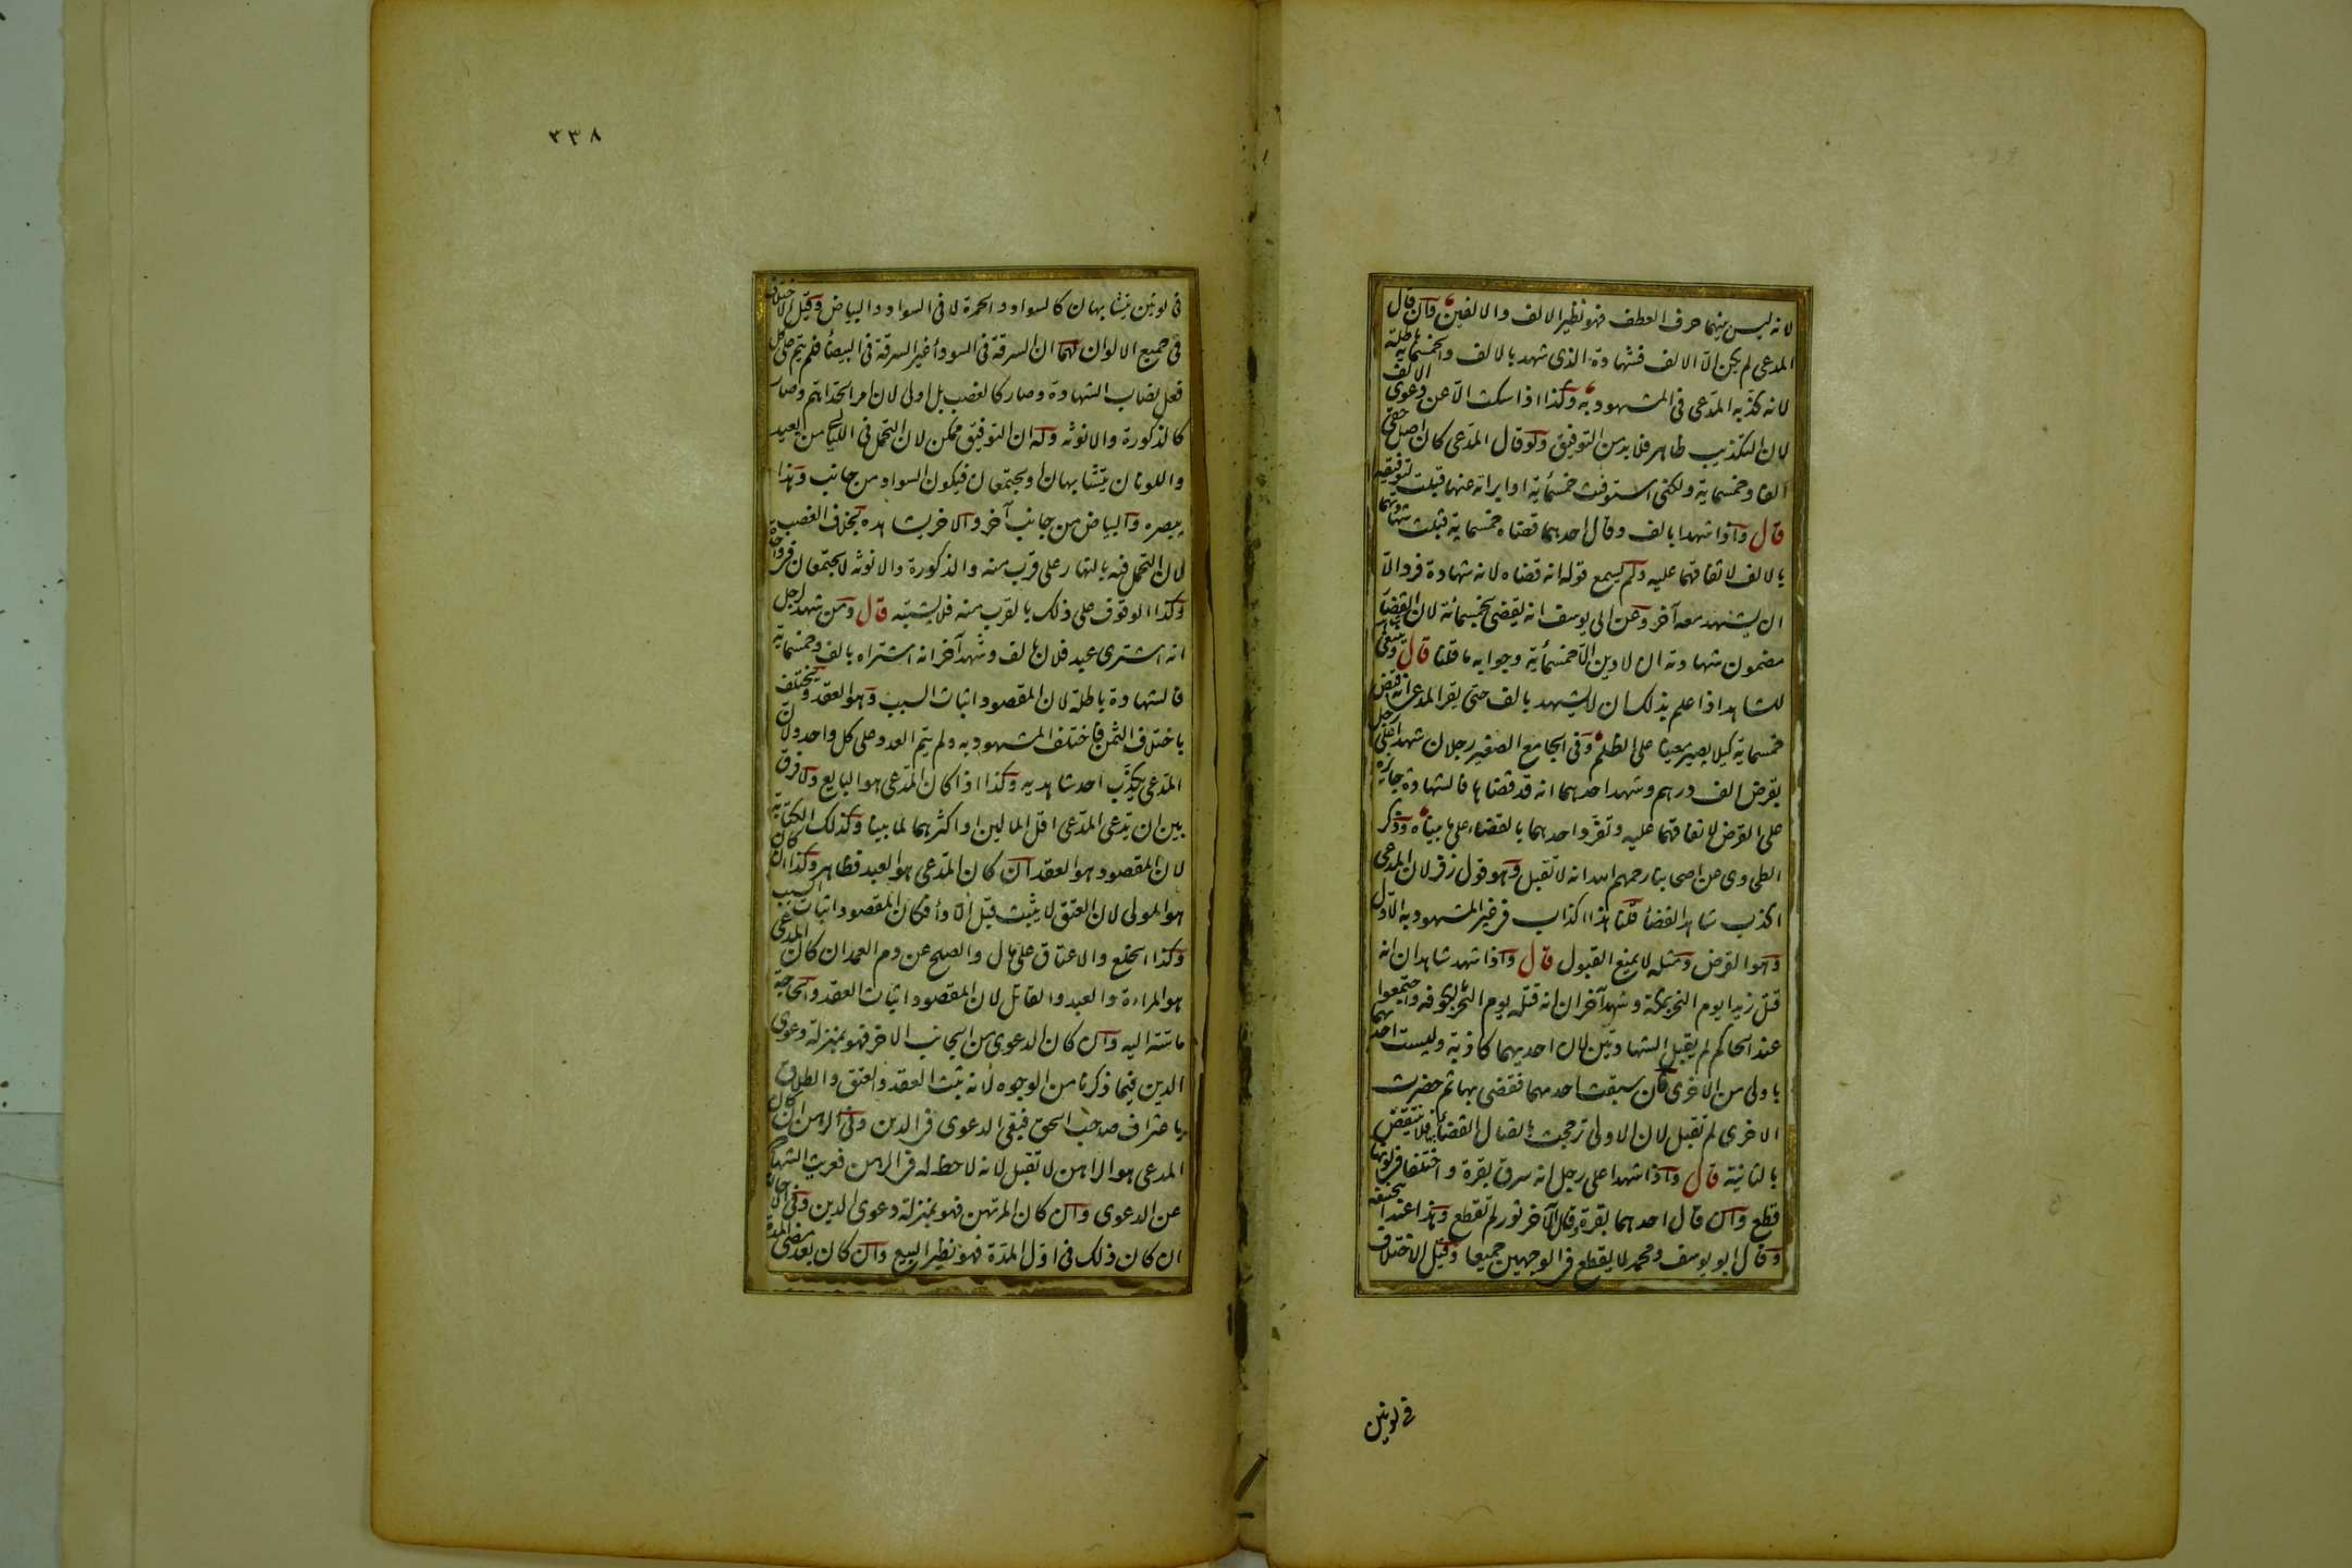 لانه ليس بينهما حرف العطف فهو نظير الالف والالفين وان قال
المدعى لم يكن الا الالف فشهادة الذى شهد بالالف والخمسمائة باطلة
لانه كذبه المدعى فى المشهود به وكذا اذا سكت الا عن دعوى الالف
لان التكذيب ظاهر فلا بد من التوفيق ولو قال المدعى كان اصل حقى
الفا وخمسمائة ولكنى استوفيت خمسمائة او ابراته عنها قبلت لتوفيقه
قال واذا شهدا بالف وقال احدهما قضاه خمسمائة قبلت شهادتهما
بالالف لاتفاقهما عليه ولم يسمع قوله انه قضاه لانه شهادة فرد الا
ان يشهد معه آخر وعن ابى يوسف انه يقضى بخمسمائة لان القضاء
مضمون شهادته ان لا دين الا خمسمائة وجوابه ما قلنا قال وينبغى
للشاهد اذا علم بذلك ان لا يشهد بالف حتى يقر المدعى انه قبض
خمسمائة كيلا يصير معينا على الظلم وفى الجامع الصغير رجلان شهدا على رجل
بقرض الف درهم وشهد احدهما انه قد قضاها فالشهادة جائزة
على القرض لاتفاقهما عليه وتفرد احدهما بالقضاء على ما بيناه وذكر
الطحاوى عن اصحابنا رحمهم الله انه لا تقبل وهو قول زفر لان المدعى
اكذب شاهد القضاء قلنا هذا اكذاب فى غير المشهود به الاول
وهو القرض ومثله لا يمنع القبول قال واذا شهد شاهدان انه
قتل زيدا يوم النحر بمكة وشهد آخران انه قتله يوم النحر بالكوفة واجتمعوا
عند الحاكم لم يقبل الشهادتين لان احديهما كاذبة وليست احدهما
باولى من الاخرى فان سبقت احدهما فقضى بها ثم حضرت
الاخرى لم تقبل لان الاولى ترجحت باتصال القضاء بها فلا تنتقض
بالثانية قال واذا شهدا على رجل انه سرق بقرة واختلفا فى لونها
قطع وان قال احدهما بقرة وقال الآخر ثور لم تقطع وهذا عند ابى حنيفة
وقال ابو يوسف ومحمد لا يقطع فى الوجهين جميعا وقيل الاختلاف
فى لونين
٣٣٨
فى لونين يتشابهان كالسواد والحمرة لا فى السواد والبياض وقيل الاختلاف
فى جميع الالوان لهما ان السرقة فى السوداء غير السرقة فى البيضاء فلم يتم على كل
فعل نصاب الشهادة وصار كالغصب بل اولى لان امر الحد اهم وصار
كالذكورة والانوثة وله ان التوفيق ممكن لان التحمل فى الليالى من بعيد
واللونان يتشابهان او يجتمعان فيكون السواد من جانب وهذا
يبصره والبياض من جانب آخر والاخر يشاهده بخلاف الغصب
لان التحمل فيه بالنهار على قرب منه والذكورة والانوثة لا يجتمعان فى واحدة
وكذا الوقوف على ذلك بالقرب منه فلا يشتبه قال ومن شهد لرجل
انه اشترى عبد فلان بالف وشهد آخر انه اشتراه بالف وخمسمائة
فالشهادة باطلة لان المقصود اثبات السبب وهو العقد ويختلف
باختلاف الثمن فاختلف المشهود به ولم يتم العدد على كل واحد ولان
المدعى يكذب احد شاهديه وكذا اذا كان المدعى هو البايع ولا فرق
بين ان يدعى المدعى اقل المالين او اكثرهما لما بينا وكذلك الكتابة
لان المقصود هو العقد ان كان المدعى هو العبد فظاهر وكذا ان كان
هو المولى لان العتق لا يثبت قبل الاداء فكان المقصود اثبات السبب
وكذا الخلع والاعتاق على مال والصلح عن دم العمد ان كان المدعى
هو المراءة والعبد والقاتل لان المقصود اثبات العقد والحاجة
ماسة اليه وان كان الدعوى من الجانب الاخر فهو بمنزلة دعوى
الدين فيما ذكرنا من الوجوه لانه يثبت العقد والعتق والطلاق
باعتراف صاحب الحق فبقى الدعوى فى الدين وفى الرهن ان كان
المدعى هو الراهن لا تقبل لانه لا حظ له فى الرهن فعريت الشهادة
عن الدعوى وان كان المرتهن فهو بمنزلة دعوى الدين وفى الاجارة
ان كان ذلك فى اول المدة فهو نظير البيع وان كان بعد مضى المدة